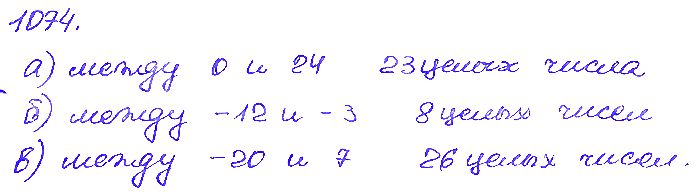 1074.
а) между 0 и 24 23 целых числа
б) между -12 и -3 8 целых чисел
в) между -20 и 7 26 целых чисел.